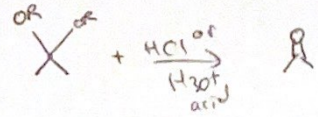 OR OR
+ HCl or
H3O+
acid
O